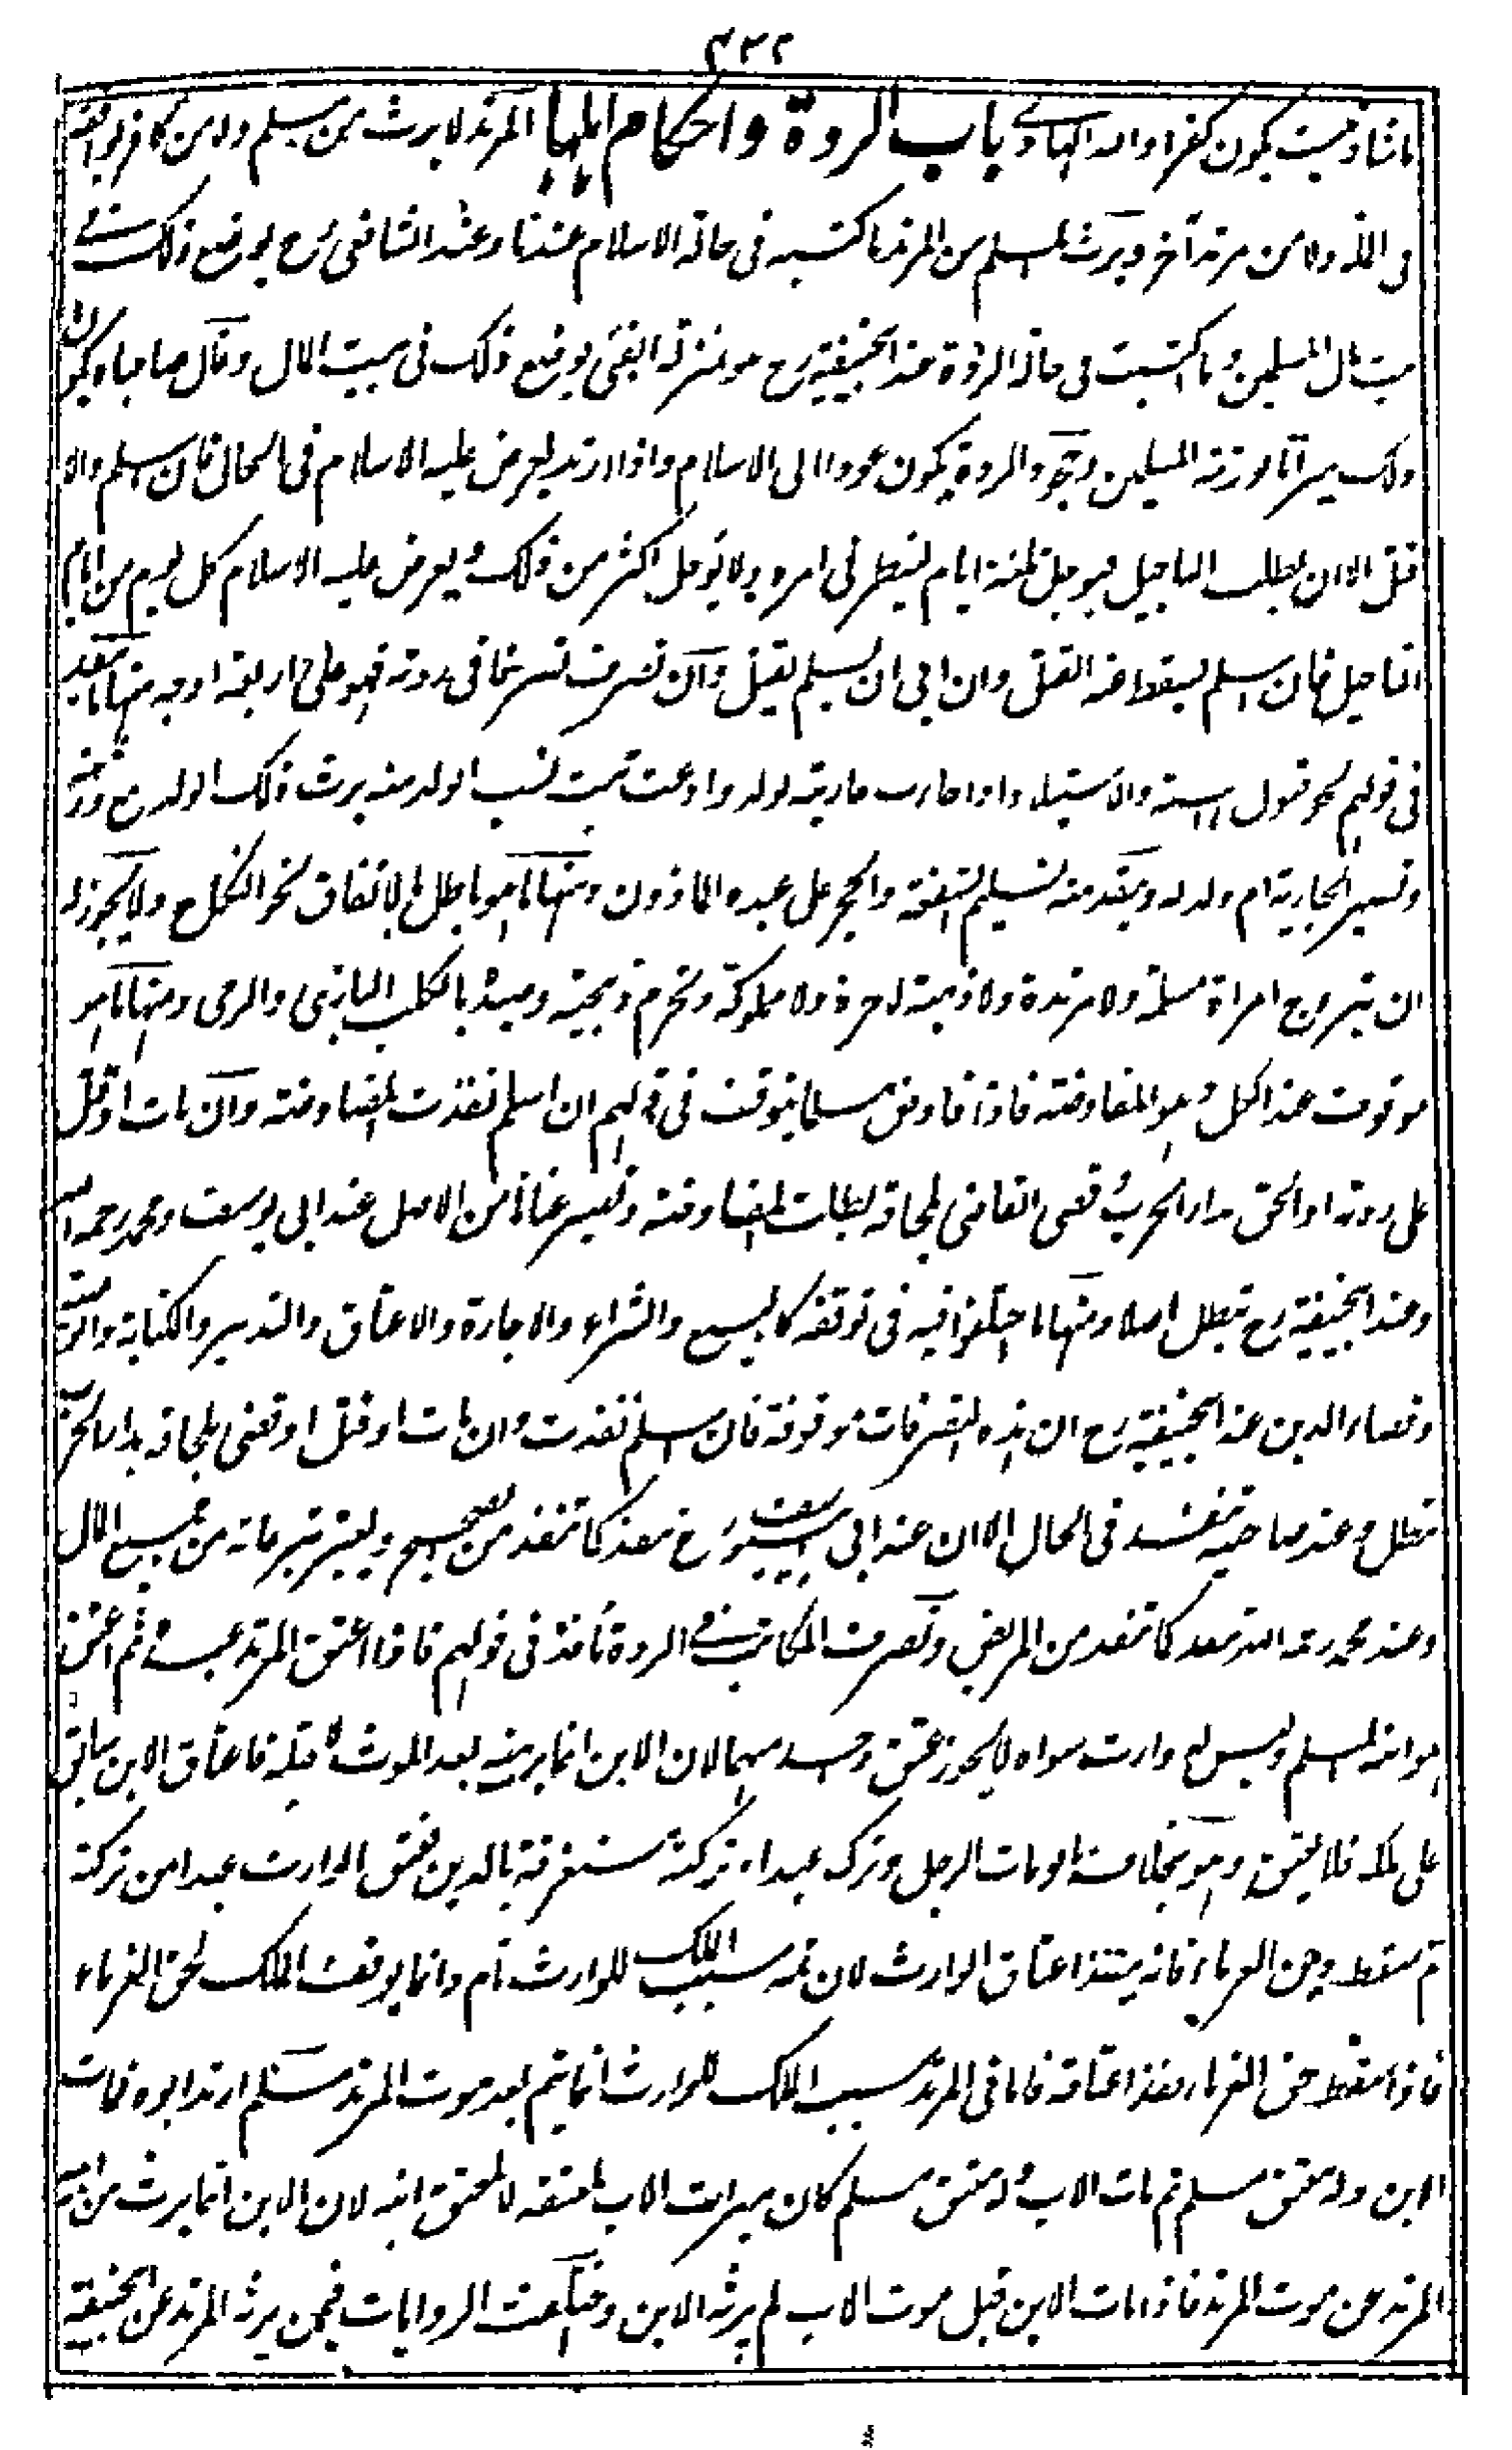 ٤٣٢
ما شاء حيث يكون كفرا والله الهادي باب الردة واحكام اهلها المرتد لا يرث من مسلم ولا من كافر يوافقه
فى الملة ولا من مرتد آخر ويرث المسلم من المرتد ما اكتسبه فى حالة الاسلام عندنا وعند الشافعى رح يوضع ذلك فى
بيت مال المسلمين وما اكتسبت فى حالة الردة عند ابيحنيفة رح هو بمنزلة الفئ يوضع ذلك فى بيت المال وقال صاحباه يكون
ذلك ميراثا لورثته المسلمين وجحود الردة يكون عودا الى الاسلام واذا ارتد يعرض عليه الاسلام فى الحال فان اسلم والا
قتل الا ان يطلب التاجيل فيوجل ثلثة ايام لينظر فى امره ولا يوجل اكثر من ذلك ويعرض عليه الاسلام كل يوم من ايام
التاجيل فان اسلم يسقط عنه القتل وان ابى ان يسلم يقتل وان تصرف تصرفا فى ردته فهو على اربعة اوجه منها ما ينفذ
فى قولهم نحو قبول الهبة والاستيلاد اذا جاءت جاريته بولد وادعت ثبت نسب الولد منه يرث ذلك الولد مع ورثته
وتصير الجارية ام ولد له وينفذ منه تسليم الشفعة والحجر على عبده الماذون ومنها ما هو باطل بالاتفاق نحو النكاح ولا يجوز له
ان يتزوج امراة مسلمة ولا مرتدة ولا ذمية لا حرة ولا مملوكة وتحرم ذبيحته وصيده بالكلب البازى والرمى ومنها ما هو
موقوف عند الكل وهو المفاوضة فاذا فاوض مسلما يتوقف فى قولهم ان اسلم نفذت المفاوضة وان مات او قتل
على ردته او الحق بدار الحرب وقضى القاضى بلحاقه بطلت المفاوضة وتصير عنانا من الاصل عند ابى يوسف ومحمد رحمه الله
وعند ابيحنيفة رح تبطل اصلا ومنها ما اختلفوا فيه فى توقفه كالبيع والشراء والاجارة والاعتاق والتدبير والكتابة والوصية
وقضاء الدين عند ابيحنيفة رح ان هذه التصرفات موقوفة فان اسلم نفذت وان مات او قتل او قضى بلحاقه بدار الحرب
تبطل وعند صاحبيه تنفذ فى الحال الا ان عند ابى يوسف رح تنفذ كما تنفذ من الصحيح ويعتبر تبرعاته من جميع المال
وعند محمد رحمه الله تنفذ كما تنفذ من المريض وتصرف المكاتب فى الردة نافذ فى قولهم فاذا اعتق المرتد عبده ثم اعتق
هو ابنه المسلم وليس له وارث سواه لا يجوز عتق واحد منهما لان الابن انما يرثه بعد الموت لا قبله فاعتاق الابن سابق
على ملكه فلا يعتق وهو بخلاف ما لو مات الرجل وترك عبدا وتركته مستغرقة بالدين فعتق الوارث عبدا من تركته
ثم سقط دين الغرماء فانه ينفذ اعتاق الوارث لان ثمه سبب الملك للوارث تام وانما يوقف الملك لحق الغرماء
فاذا سقط حق الغرماء نفذ اعتاقه فاما فى المرتد سبب الملك للوارث انما يتم بعد موت المرتد مسلم ارتد ابوه فمات
الابن وله معتق مسلم ثم مات الاب وله معتق مسلم كان ميراث الاب لمعتقه لا لمعتق ابنه لان الابن انما يرث من ابيه
المرتد عن موت المرتد فاذا مات الابن قبل موت الاب لم يرثه الابن واختلفت الروايات فيمن يرث المرتد عن ابيحنيفة